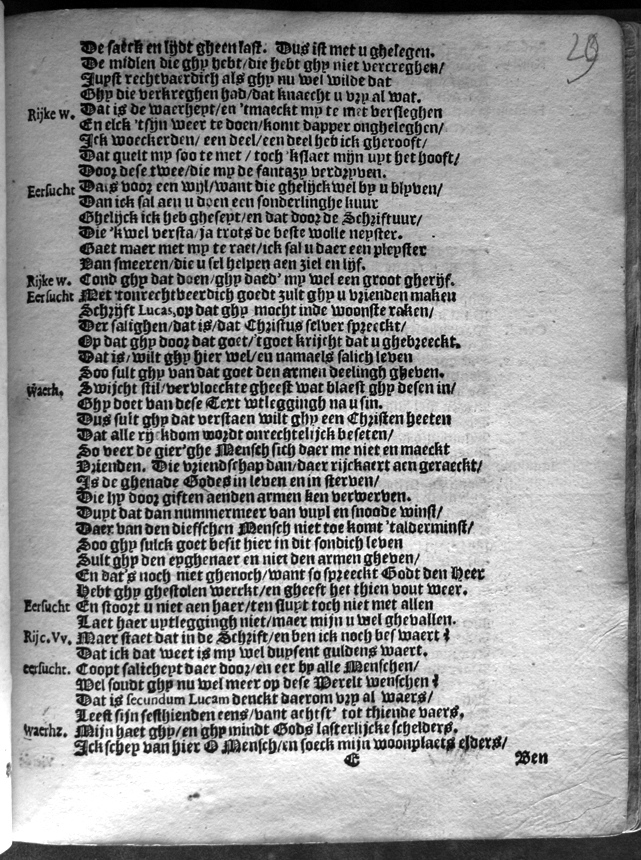 29
De saeck en lijdt gheen last. Dus ist met u ghelegen.
De midlen die ghy hebt/die hebt ghy niet vercreghen/
Jupst rechtvaerdich als ghy nu wel wilde dat
Ghy die verkreghen had/dat knaecht u vry al wat.
Rijke w. Dat is de waerheyt/en 'tmaeckt my te met versleghen
En elck 'tsijn weer te doen/komt dapper ongheleghen/
Ick woeckerden/een deel/een deel heb ick gherooft/
Dat quelt my soo te met/toch 'kslaet mijn uyt het hooft/
Door dese twee/die my de fantazy verdryven.
Eersucht Dats voor een wijl/want die ghelijck wel by u blyven/
Dan ick sal aen u doen een sonderlinghe kuur
Ghelijck ick heb gheseyt/en dat door de Schriftuur/
Die 'k wel versta/ja trots de beste wolle neyster.
Gaet maer met my te raet/ick sal u daer een pleyster
Van smeeren/die u sel helpen aen ziel en lijf.
Rijke w. Cond ghy dat doen/ghy daed' my wel een groot gherijf.
Eersucht Met 'tonrechtveerdich goedt zult ghy u vrienden maken
Schrijft Lucas, op dat ghy mocht inde woonste raken/
Der salighen/dat is/dat Christus selver spreeckt/
Op dat ghy door dat goet/'tgoet krijcht dat u ghebreeckt.
Dat is/wilt ghy hier wel/en namaels salich leven
Soo sult ghy van dat goet den armen deelingh gheven.
waerh. Swijcht stil/vervloeckte gheest wat blaest ghy desen in/
Ghy doet van dese Text wtleggingh na u sin.
Dus sult ghy dat verstaen wilt ghy een Christen heeten
Dat alle rijckdom wordt onrechtelijck beseten/
So veer de gier'ghe Mensch sich daer me niet en maeckt
Vrienden. Die vriendschap dan/daer rijckaert aen geraeckt/
Is de ghenade Godes in leven en in sterven/
Die hy door giften aenden armen ken verwerven.
Duyt dat dan nummermeer van vuyl en snoode winst/
Daer van den diefschen Mensch niet toe komt 'talderminst/
Soo ghy sulck goet besit hier in dit sondich leven
Sult ghy den eyghenaer en niet den armen gheven/
En dat's noch niet ghenoch/want so spreeckt Godt den Heer
Hebt ghy ghestolen werckt/en gheeft het thien vout weer.
Eersucht En stoort u niet aen haer/ten sluyt toch niet met allen
Laet haer uytleggingh niet/maer mijn u wel ghevallen.
Rijc. Vv. Maer staet dat in de Schrift/en ben ick noch bes waert?
Dat ick dat weet is my wel duysent guldens waert.
eersucht. Coopt salicheyt daer door/en eer by alle Menschen/
Wel soudt ghy nu wel meer op dese Werelt wenschen?
Dat is secundum Lucam denckt daerom vry al waers/
Leest sijn sesthienden eens/vant achtst' tot thiende vaers.
waerhz. Mijn haet ghy/en ghy mindt Gods lasterlijcke schelders.
Ick schey van hier O Mensch/en soeck mijn woonplaets elders/
E Ben